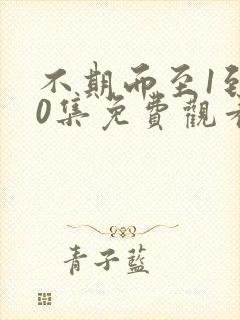 不期而至1到
0集免費觀看
青子藍